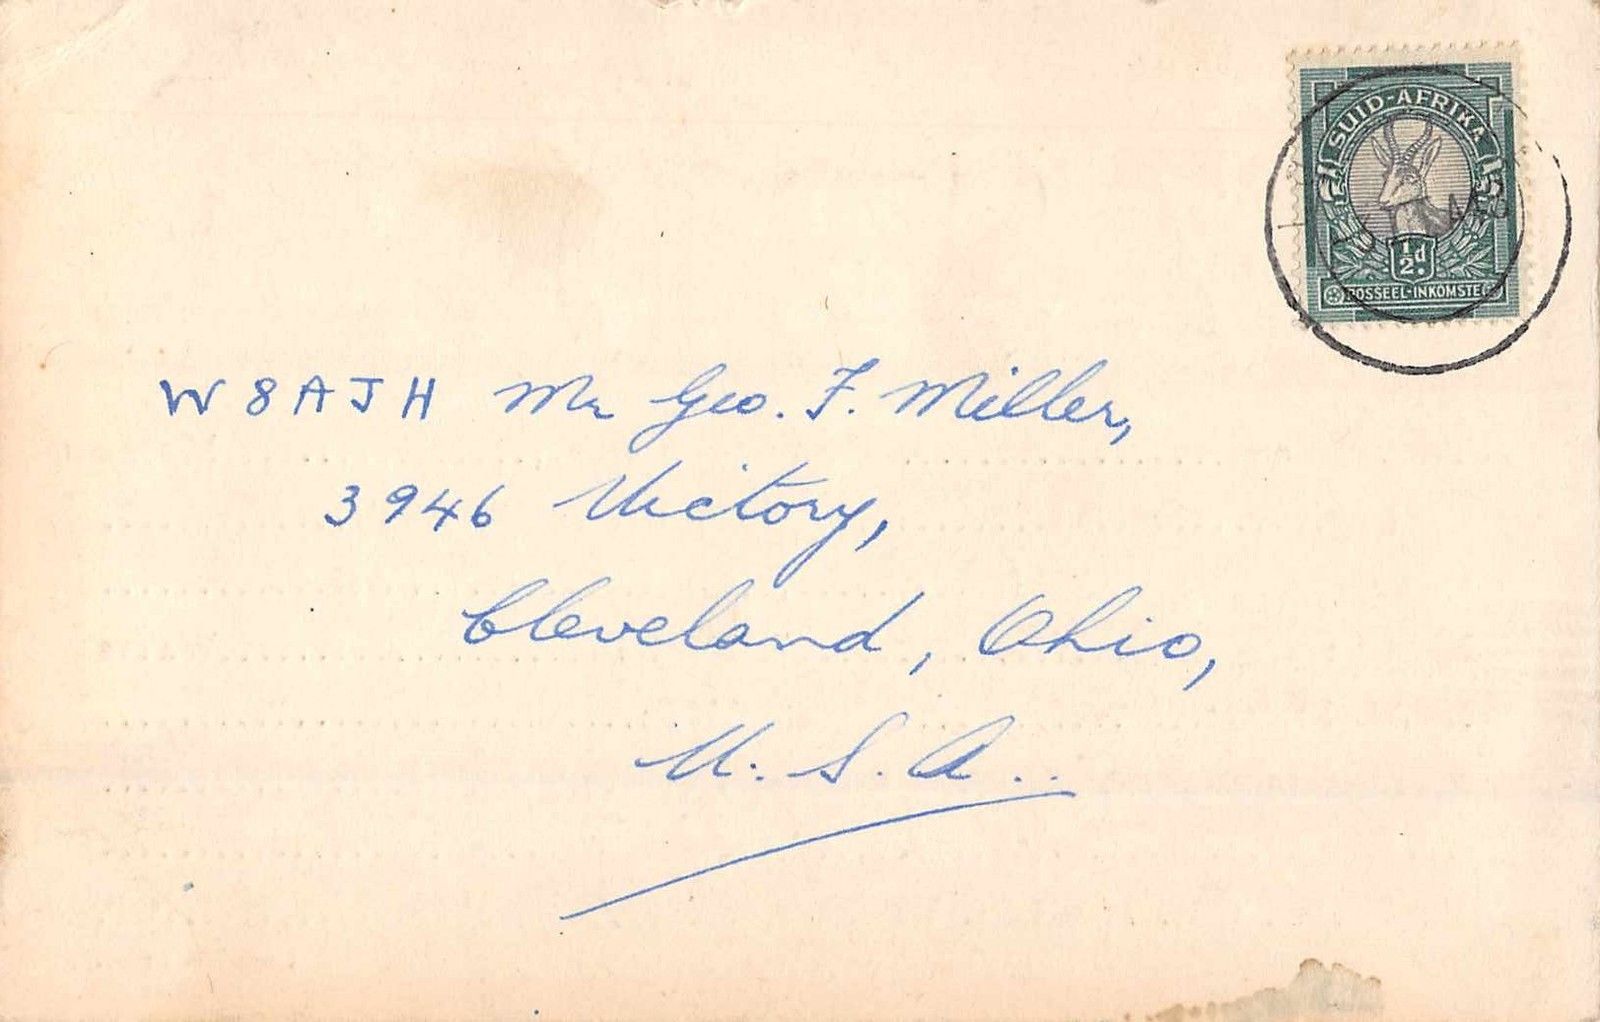 SUID-AFRIKA
½d.
POSSEEL-INKOMSTE
W8AJH Mr Geo. F. Miller,
3946 Victory,
Cleveland, Ohio,
U.S.A..